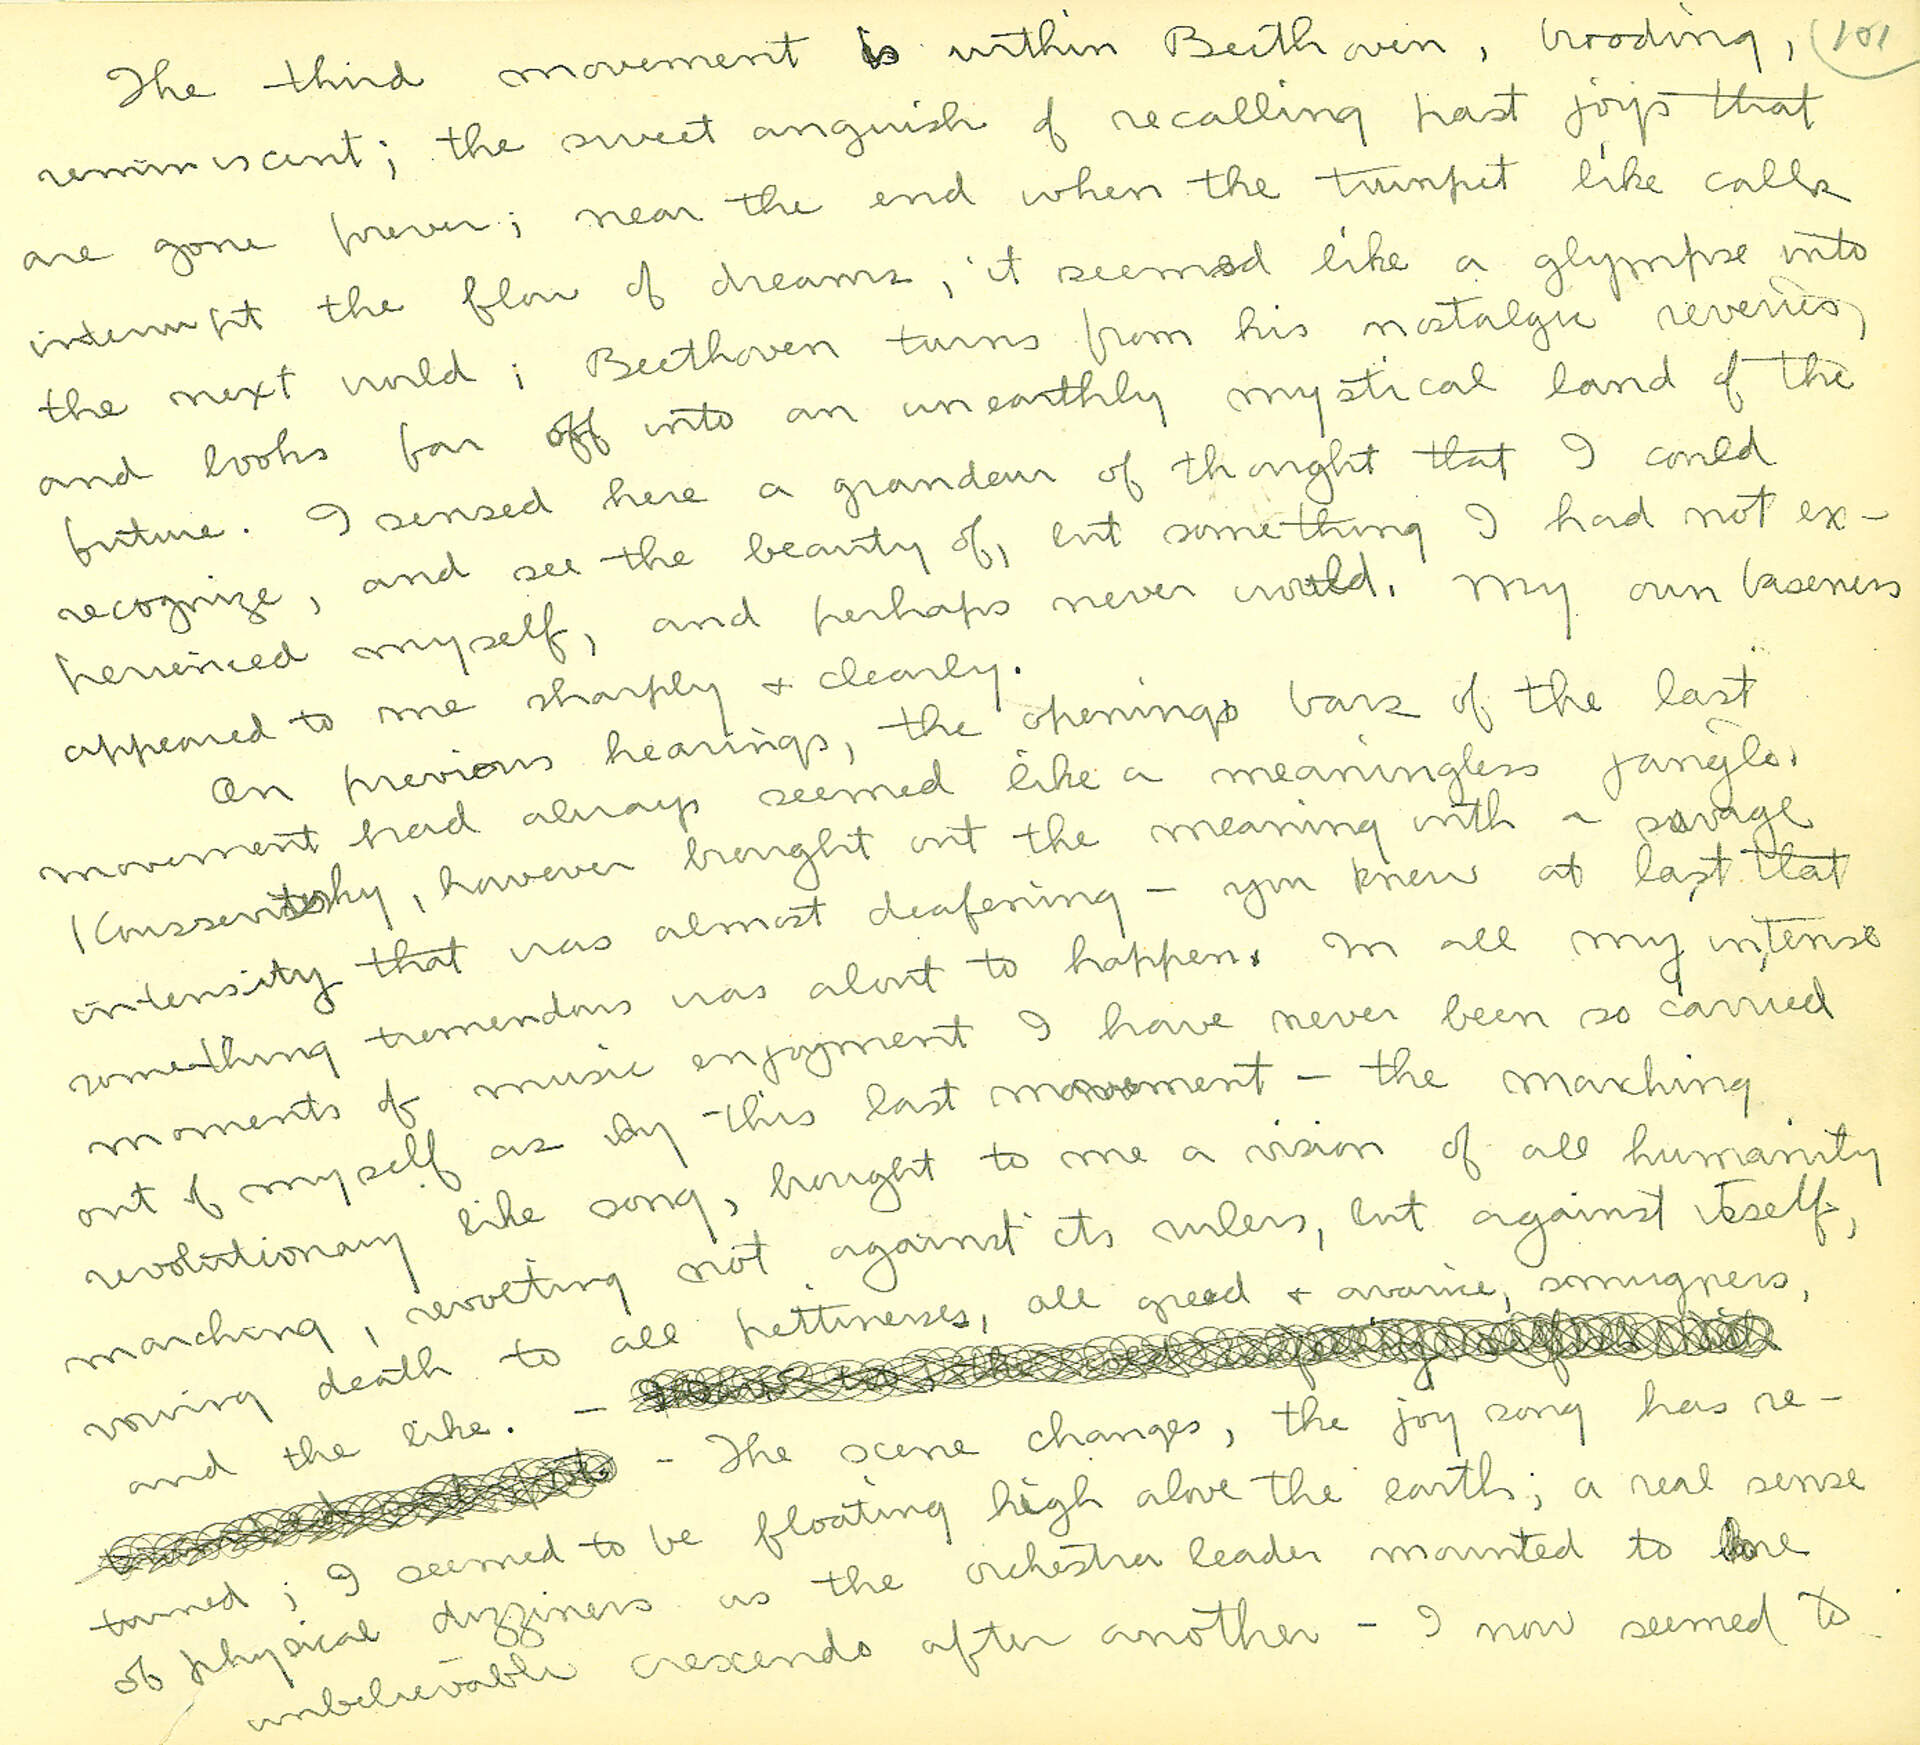 The third movement is within Beethoven, brooding, 101
reminiscent; the sweet anguish of recalling past joys that
are gone forever; near the end when the trumpet like calls
interrupt the flow of dreams, it seemed like a glympse into
the next world; Beethoven turns from his nostalgic reveries,
and looks far off into an unearthly mystical land of the
future. I sensed here a grandeur of thought that I could
recognize, and see the beauty of, but something I had not ex-
perienced myself, and perhaps never would. My own baseness
appeared to me sharply + clearly.
On previous hearings, the openings bars of the last
movement had always seemed like a meaningless jangle.
Koussevitsky, however brought out the meaning with a savage
intensity that was almost deafening - you knew at last that
something tremendous was about to happen. In all my intense
moments of music enjoyment I have never been so carried
out of myself as by this last movement - the marching
revolutionary like song, brought to me a vision of all humanity
marching, revolting not against its rulers, but against itself,
vowing death to all pettinesses, all greed + avarice, smugness,
and the like. -
- The scene changes, the joy song has re-
turned; I seemed to be floating high above the earth; a real sense
of physical dizziness as the orchestra leader mounted to one
unbelievable crescendo after another - I now seemed to